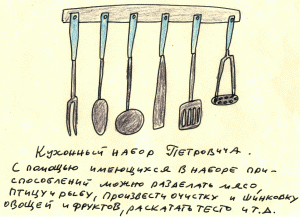 Кухонный набор Петровича.
С помощью имеющихся в наборе при-
способлений можно разделать мясо,
птицу и рыбу, произвести очистку и шинковку
овощей и фруктов, раскатать тесто и т.д.